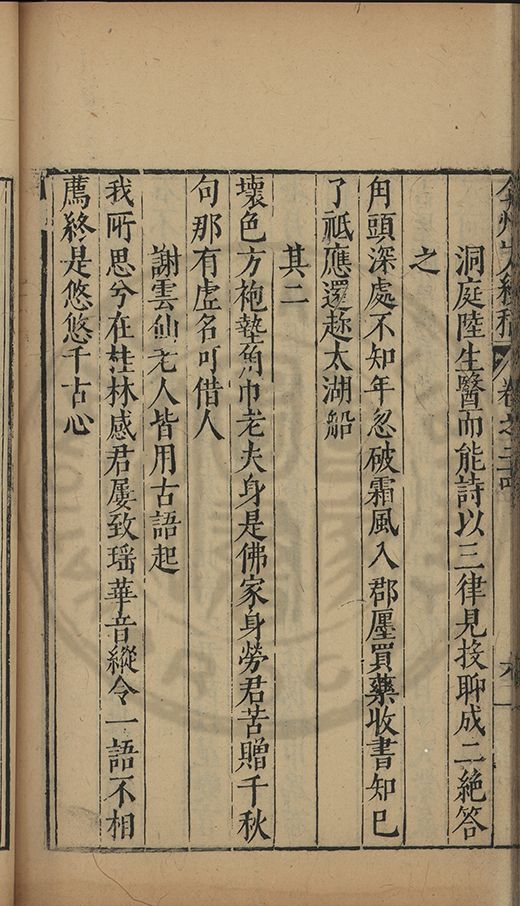 洞庭陸生醫而能詩以三律見投聊成二絕答
之
角頭深處不知年忽破霜風入郡廛買藥收書知已
了祗應還趂太湖船
其二
壞色方袍墊角巾老夫身是佛家身勞君苦贈千秋
句那有虛名可借人
謝雲仙老人皆用古語起
我所思兮在桂林感君屢致瑶華音縱令一語不相
薦終是悠悠千古心